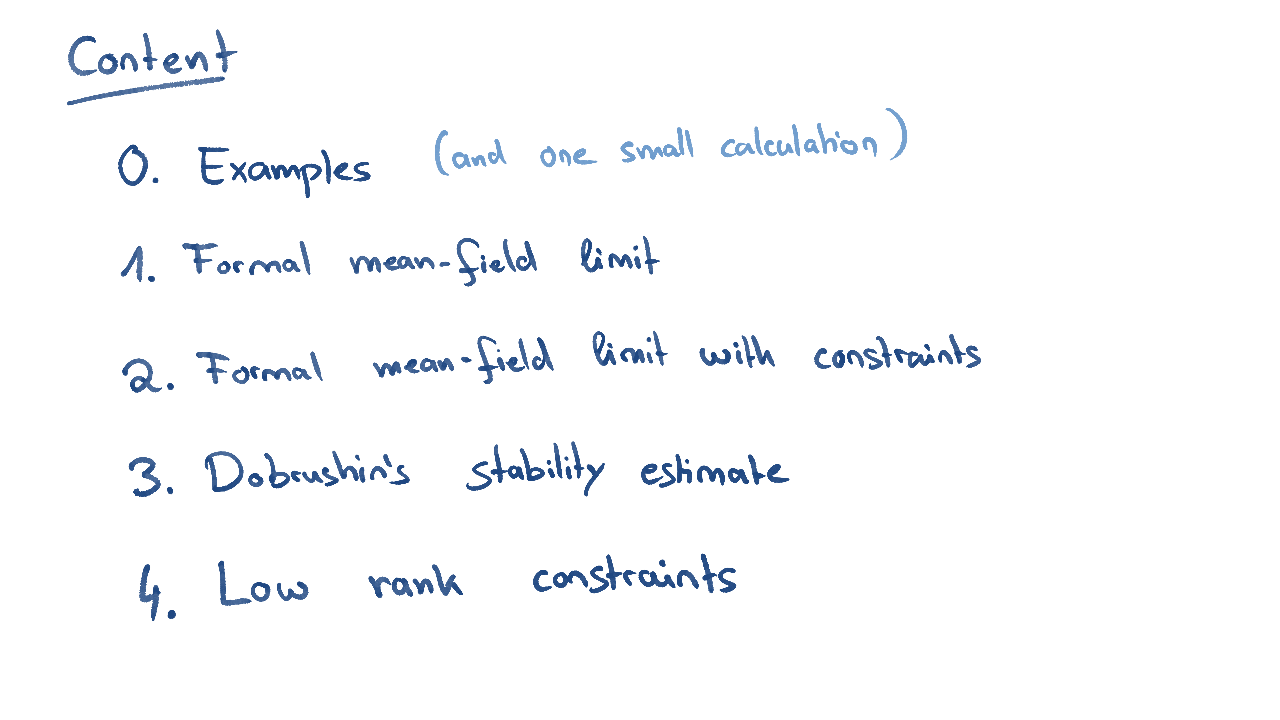 Content
0. Examples (and one small calculation)
1. Formal mean-field limit
2. Formal mean-field limit with constraints
3. Dobrushin's stability estimate
4. Low rank constraints